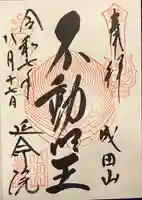 奉拝
成田山
不動明王
令和七年
八月十七日
延命院